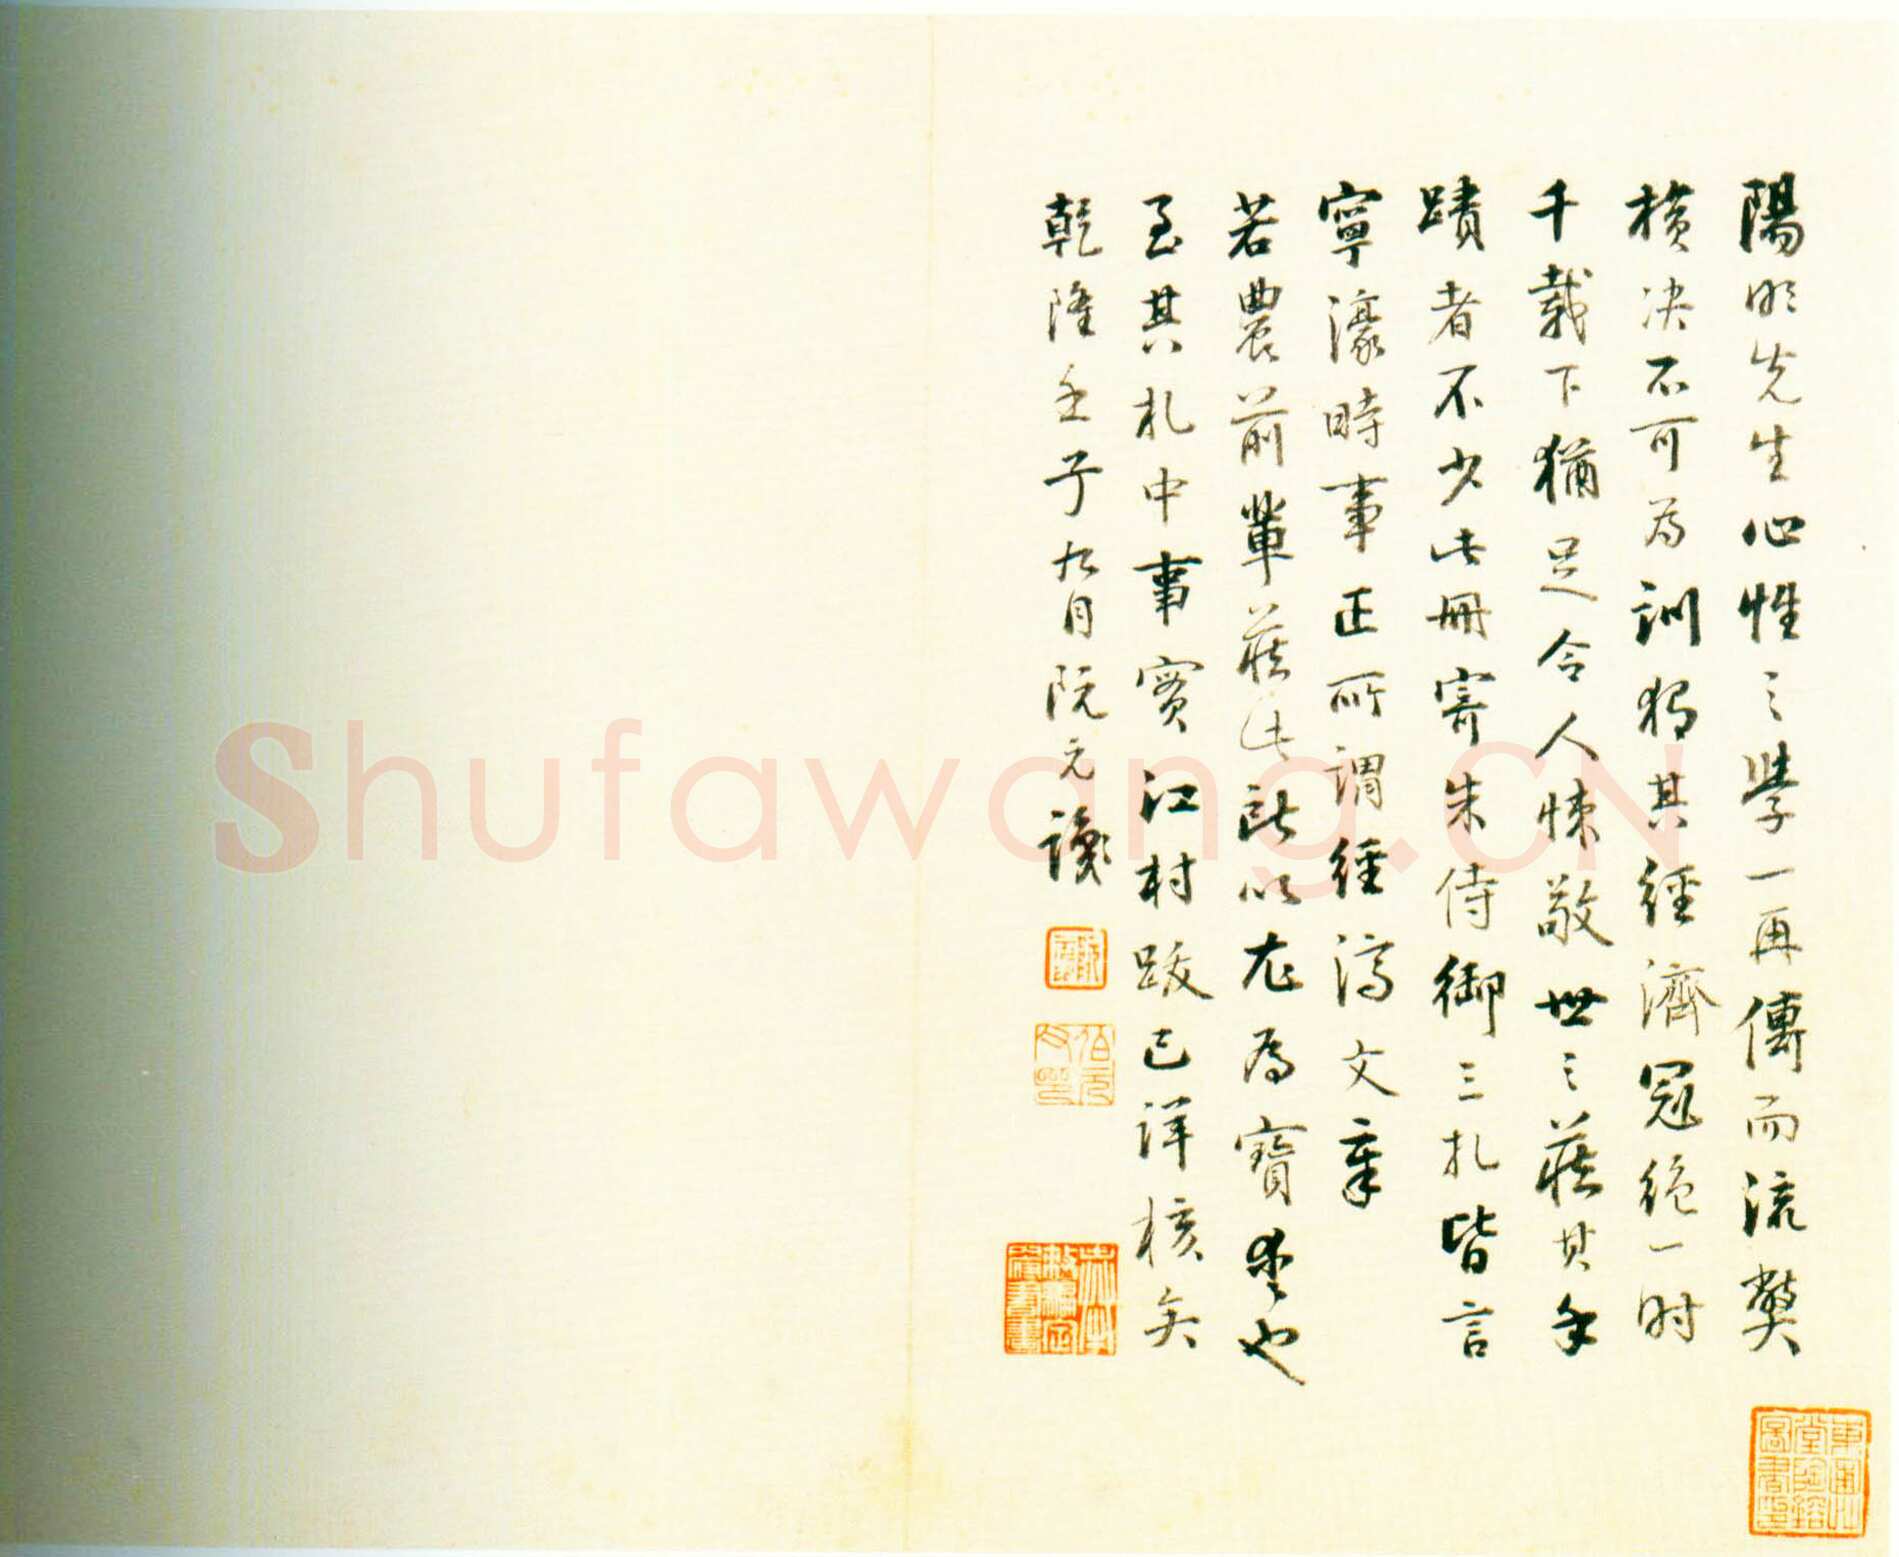 陽明先生心性之學一再傳而流獘
橫决不可為訓獨其經濟冠絕一時
千載下猶足令人悚敬世之藏其手
蹟者不少此冊寄朱侍御三札皆言
寧濠時事正所謂經濟文章
若農前軰藏此所以尤為寶愛也
至其札中事實江村跋已詳核矣
乾隆壬子九月阮元識
Shufawang.CN